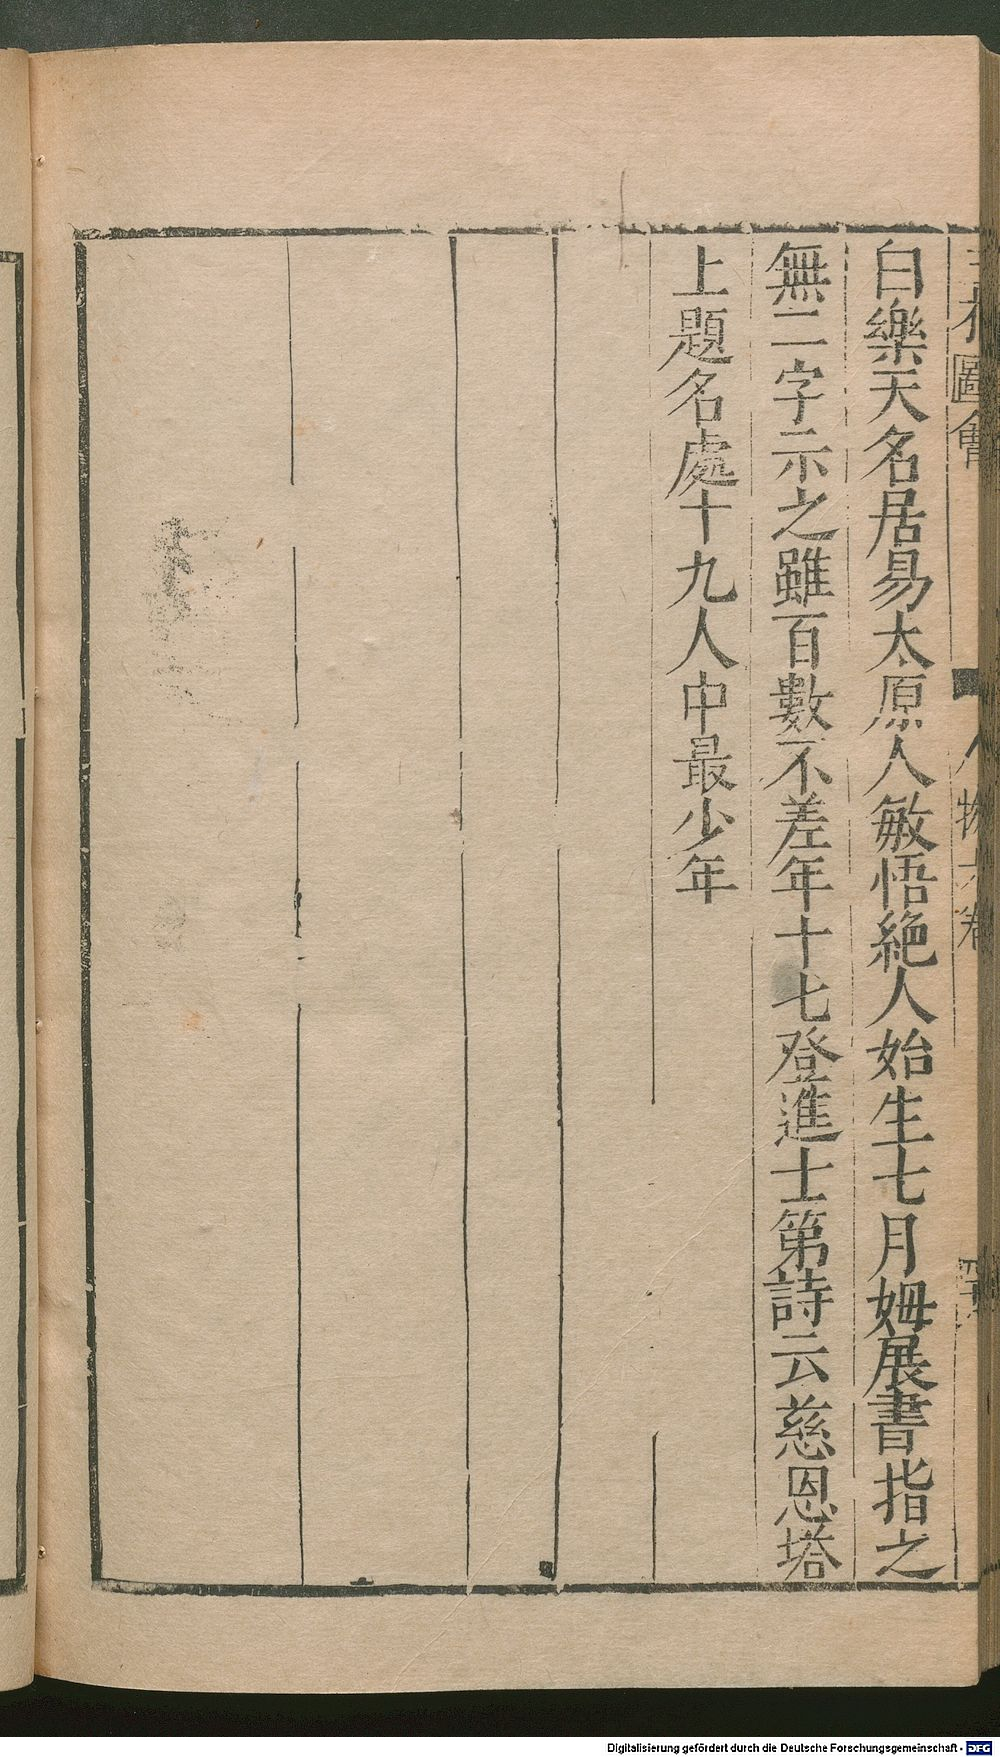 白樂天名居易太原人敏悟絶人始生七月姆展書指之
無二字示之雖百數不差年十七登進士第詩云慈恩塔
上題名處十九人中最少年
圖會
人物六卷
Digitalisierung gefördert durch die Deutsche Forschungsgemeinschaft - DFG